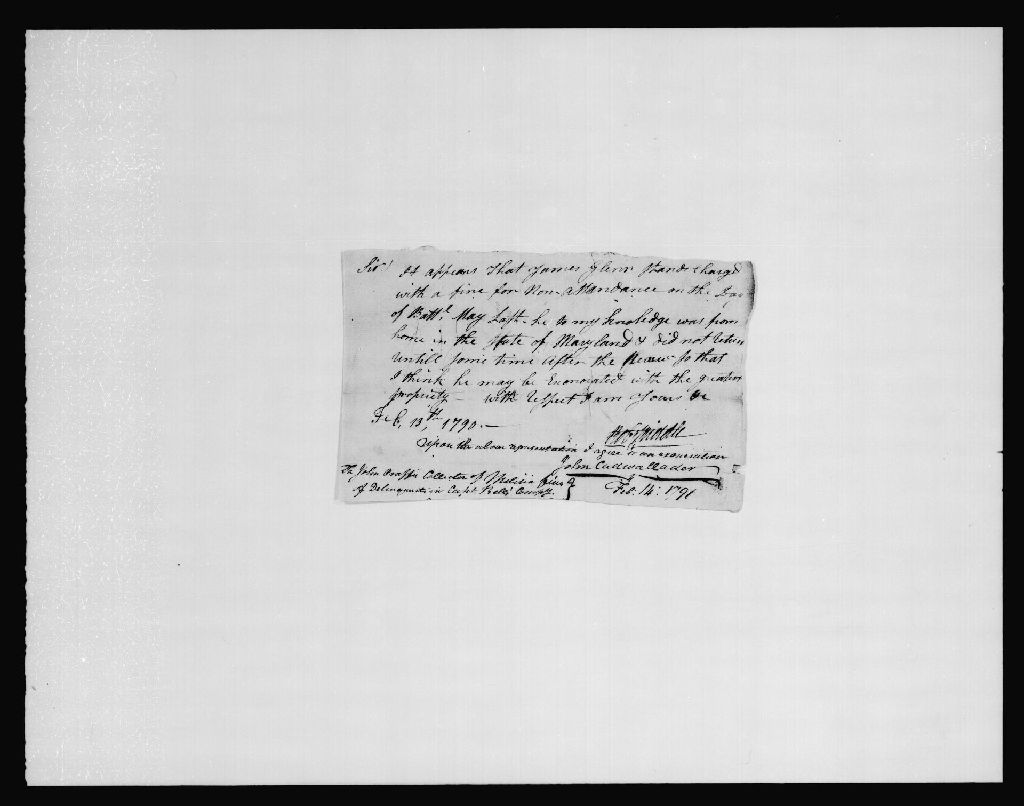 Sir! It appears that James Glenn Stands charged
with a fine for Non Attandance on the Day
of Batt.l May Last he to my knowledge was from
home in the State of Maryland & did not return
untill some time after the so that
I think he may be Exonorated with the greatest
propriety — with respect I am Yours &c
Feb. 13th, 1790.—
Upon the above representation I agree to an exoneration
John Cadwallader
To John Collector of Militia fines
of Delinquents in Capt Comp.
Feb. 14: 1790